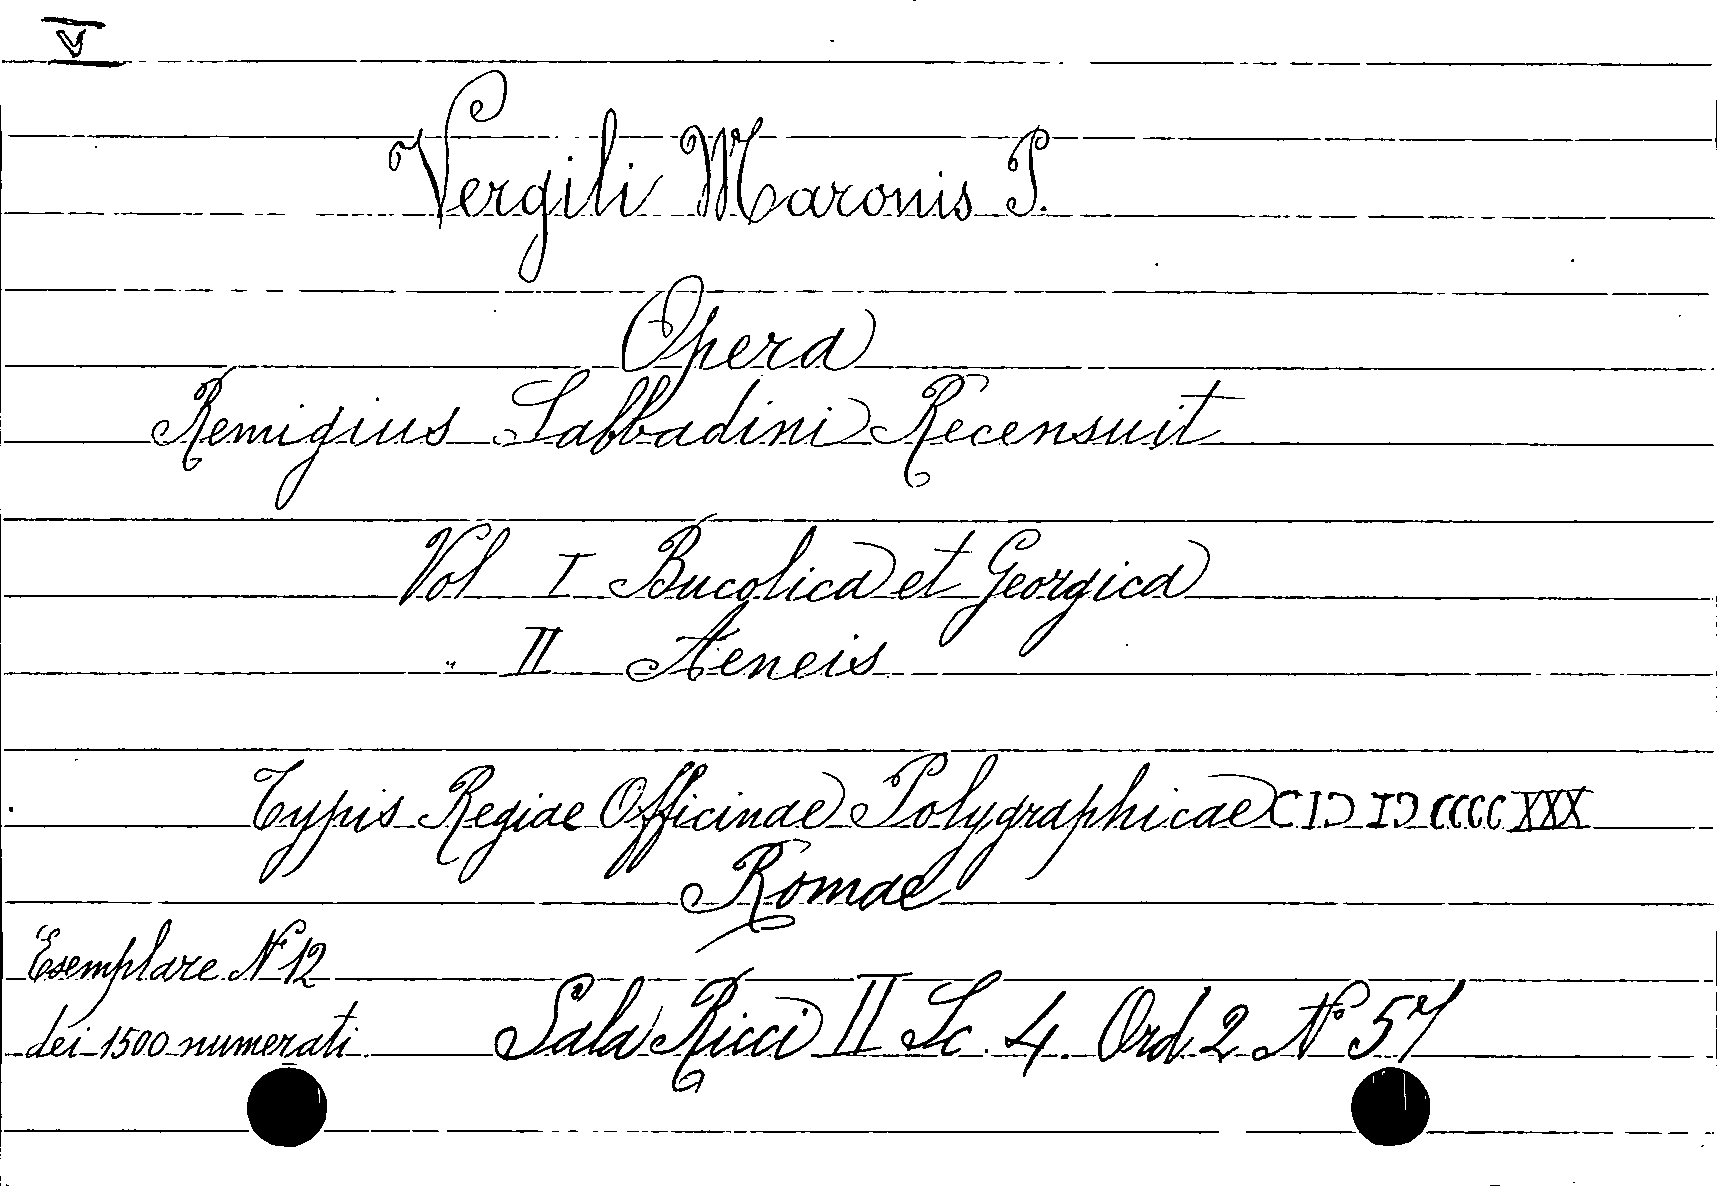 V
Vergili Maronis P.
Opera
Remigius Sabbadini Recensuit
Vol I Bucolica et Georgica
" II Aeneis
Typis Regiae Officinae Polygraphicae CIƆ IƆ CCCC XXX
Romae
Esemplare N° 12
dei 1500 numerati
Sala Ricci II Sc. 4. Ord. 2 N° 57